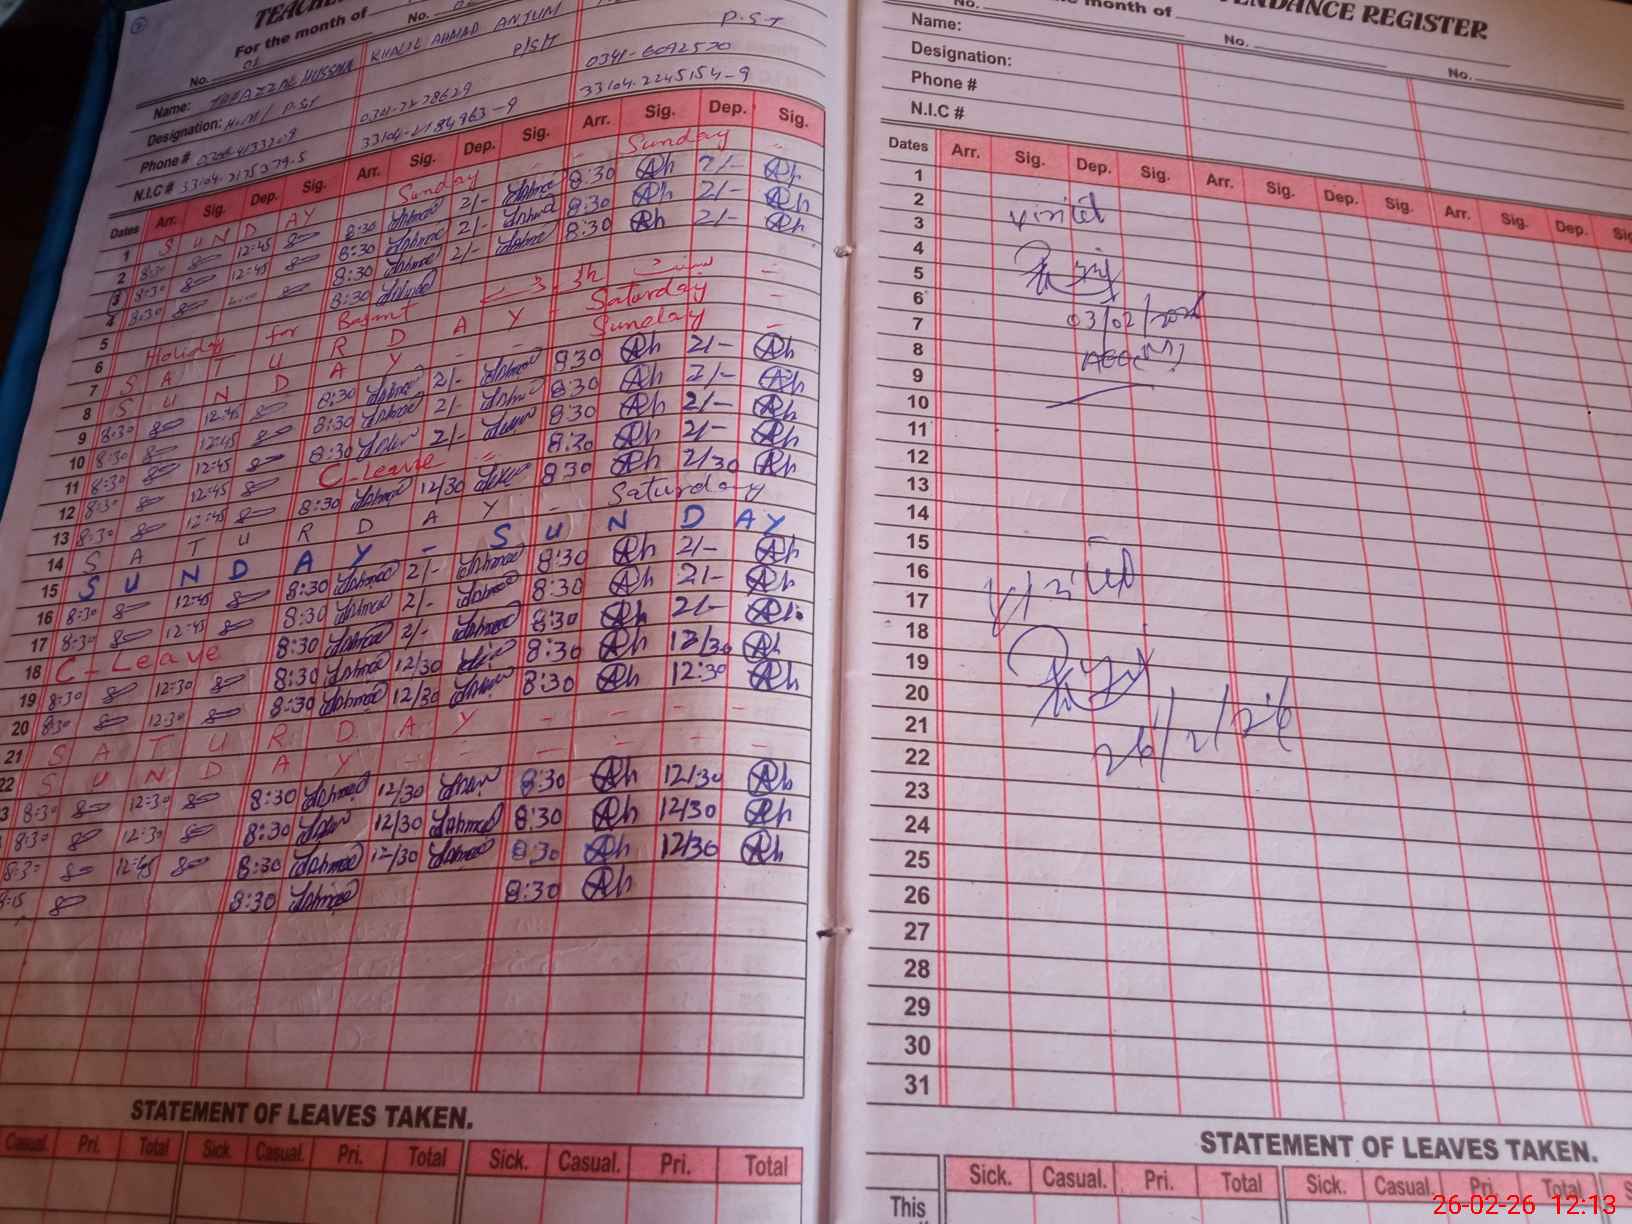 For the month of
No. 01
No.
Name: KHALIL AHMAD ANJUM
Designation: H.M / P.S.T P/S/T P.S.T
Phone # 0341-6092570
N.I.C # 33104-2245154-9
Dates Arr. Sig. Dep. Sig. Arr. Sig. Dep. Sig. Arr. Sig. Dep. Sig.
1 SUNDAY Sunday Sunday
2 8:30 12:45 8:30 Ahmad 2/- Ahmad 8:30 Ah 2/- Ah
3 8:30 12:45 8:30 Ahmad 2/- Ahmad 8:30 Ah 2/- Ah
4 8:30 8:30 Ahmad 2/- Ahmad 8:30 Ah 2/- Ah
5 8:30 Ahmad
6 Holiday for Basant
7 SATURDAY - Saturday
8 SUNDAY - - Sunday
9 8:30 12:45 8:30 Ahmad 2/- Ahmad 8:30 Ah 2/- Ah
10 8:30 12:45 8:30 Ahmad 2/- Ahmad 8:30 Ah 2/- Ah
11 8:30 12:45 8:30 Ahmad 2/- 8:30 Ah 2/- Ah
12 8:30 12:45 C-Leave 8:30 Ah 2/- Ah
13 8:30 12:45 8:30 Ahmad 12/30 8:30 Ah 2/30 Ah
14 SATURDAY - Saturday
15 SUNDAY - SUNDAY
16 8:30 12:45 8:30 Ahmad 2/- Ahmad 8:30 Ah 2/- Ah
17 8:30 12:45 8:30 Ahmad 2/- Ahmad 8:30 Ah 2/- Ah
18 C-Leave 8:30 Ahmad 2/- Ahmad 8:30 Ah 2/- Ah
19 8:30 12:30 8:30 Ahmad 12/30 8:30 Ah 12/30 Ah
20 8:30 12:30 8:30 Ahmad 12/30 8:30 Ah 12:30 Ah
21 SATURDAY - - - -
22 SUNDAY - - - - -
3 8:30 12:30 8:30 Ahmad 12/30 8:30 Ah 12/30 Ah
8:30 12:30 8:30 12/30 Ahmad 8:30 Ah 12/30 Ah
8:30 12:45 8:30 Ahmad 12/30 Ahmad 8:30 Ah 12/30 Ah
8:15 8:30 Ahmad 8:30 Ah
STATEMENT OF LEAVES TAKEN.
Casual. Pri. Total Sick. Casual. Pri. Total Sick. Casual. Pri. Total
ATTENDANCE REGISTER
month of
No.
No.
No.
Name:
Designation:
Phone #
N.I.C #
Dates Arr. Sig. Dep. Sig. Arr. Sig. Dep. Sig. Arr. Sig. Dep.
1
2 visited
3
4
5
6 03/02/2026
7
8 AEO(M)
9
10
11
12
13
14
15
16 visited
17
18
19
20
21 26/2/26
22
23
24
25
26
27
28
29
30
31
STATEMENT OF LEAVES TAKEN.
Sick. Casual. Pri. Total Sick. Casual. Pri. Total
This
26-02-26 12:13